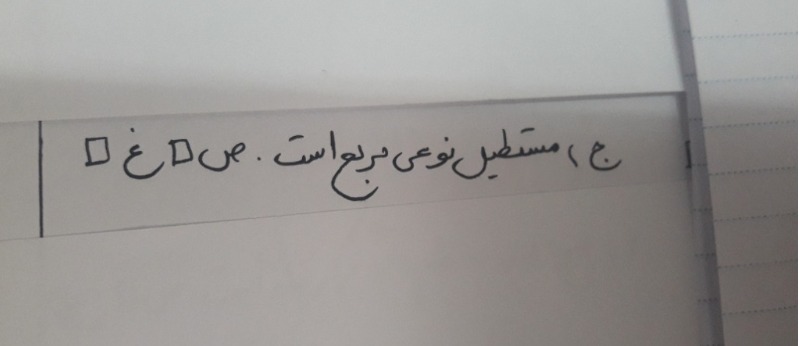 ج) مستطیل نوعی مربع است. ص □ غ □